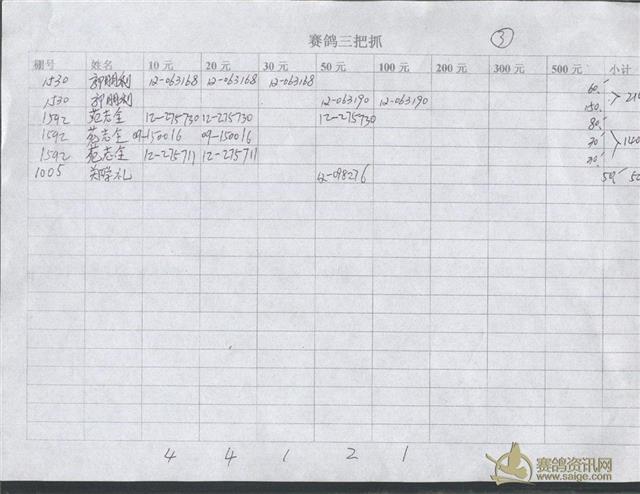 赛鸽三把抓 ③
棚号 姓名 10 元 20 元 30 元 50 元 100 元 200 元 300 元 500 元 小计
1530 郭朋利 12-063168 12-063168 12-063168 60.
1530 郭朋利 12-063190 12-063190 150. > 210
1592 范志全 12-275730 12-275730 12-275730 80.
1592 范志全 09-150016 09-150016 30. > 140
1592 范志全 12-275711 12-275711 30.
1005 郑学礼 12-098276 50. 50
4 4 1 2 1
赛鸽资讯网
www.saige.com